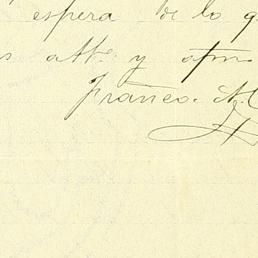 espera de lo q
s att.e y afmo
Franco. A. C